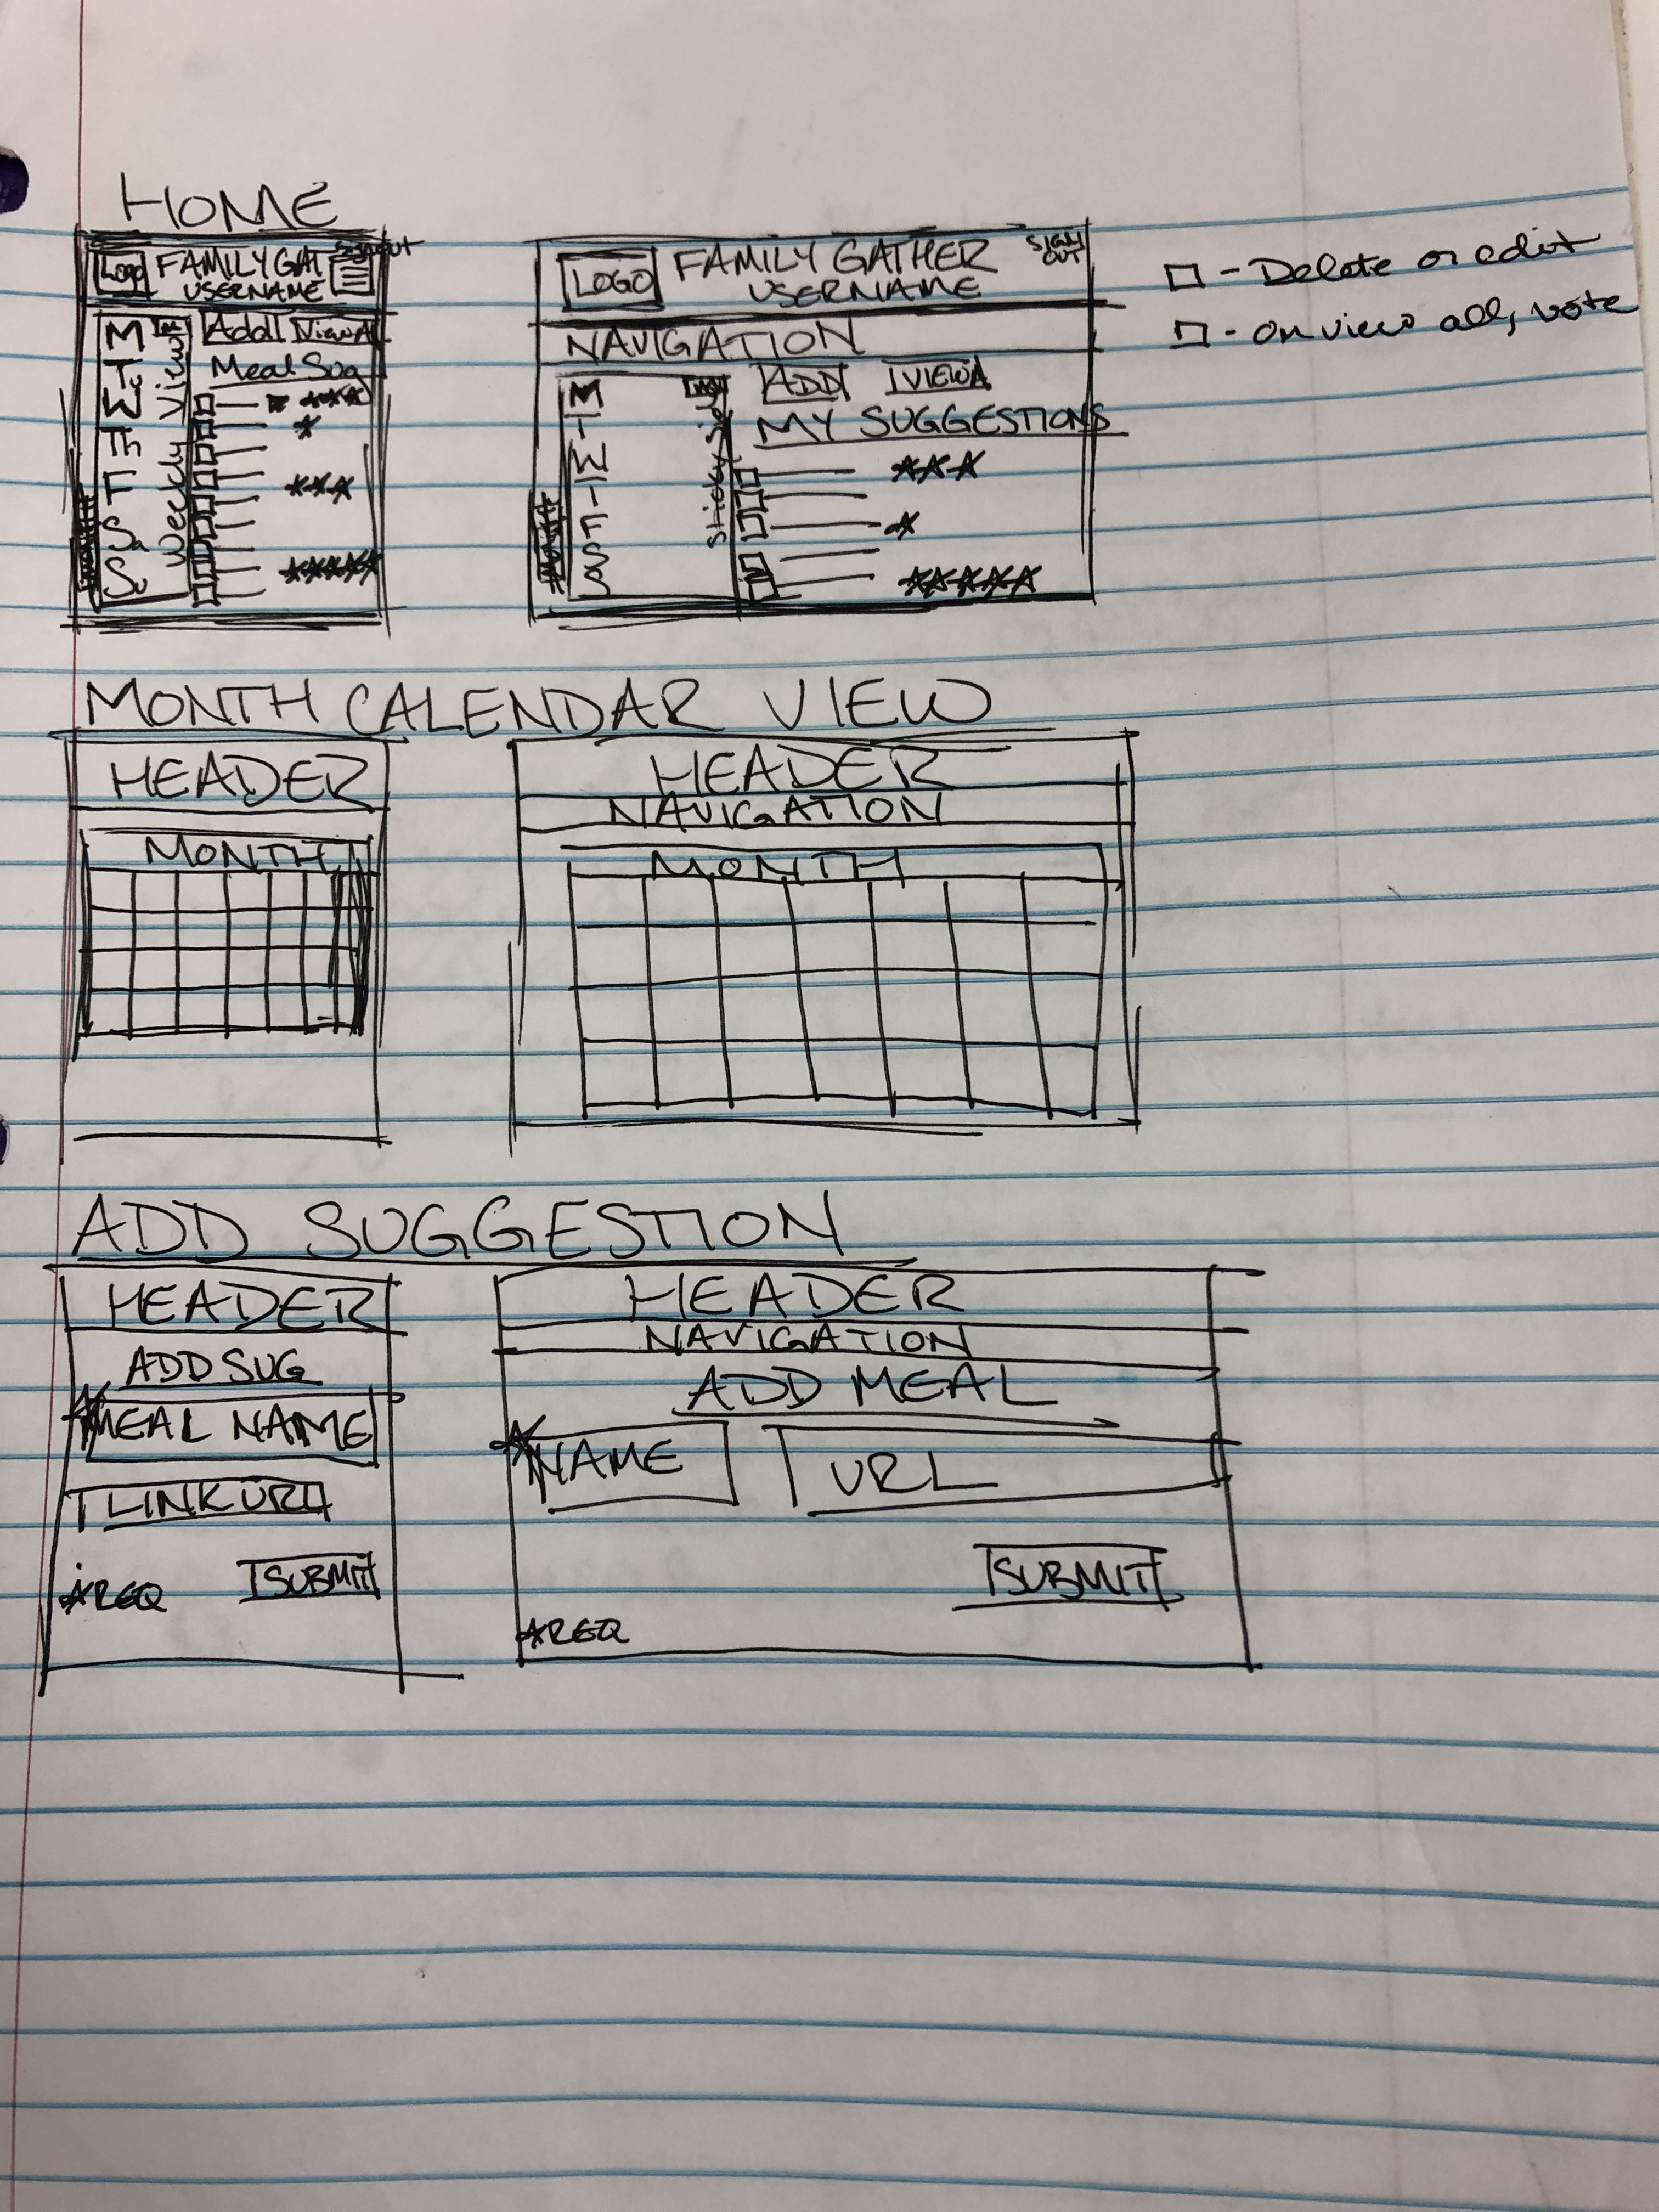 HOME
Logo FAMILY GAT SIGN OUT
USERNAME
M Add ViewA
Tu Meal Sug
W ***
Th *
F ***
Sa
Su *****
Weekly View
LOGO FAMILY GATHER SIGN OUT
USERNAME
NAVIGATION
M ADD VIEWA
T MY SUGGESTIONS
W ***
T
F *
S
S *****
□ - Delete or edit
□ - on view all, vote
MONTH CALENDAR VIEW
HEADER
MONTH
HEADER
NAVIGATION
MONTH
ADD SUGGESTION
HEADER
ADD SUG
*MEAL NAME
LINK URL
*REQ SUBMIT
HEADER
NAVIGATION
ADD MEAL
*NAME URL
SUBMIT
*REQ